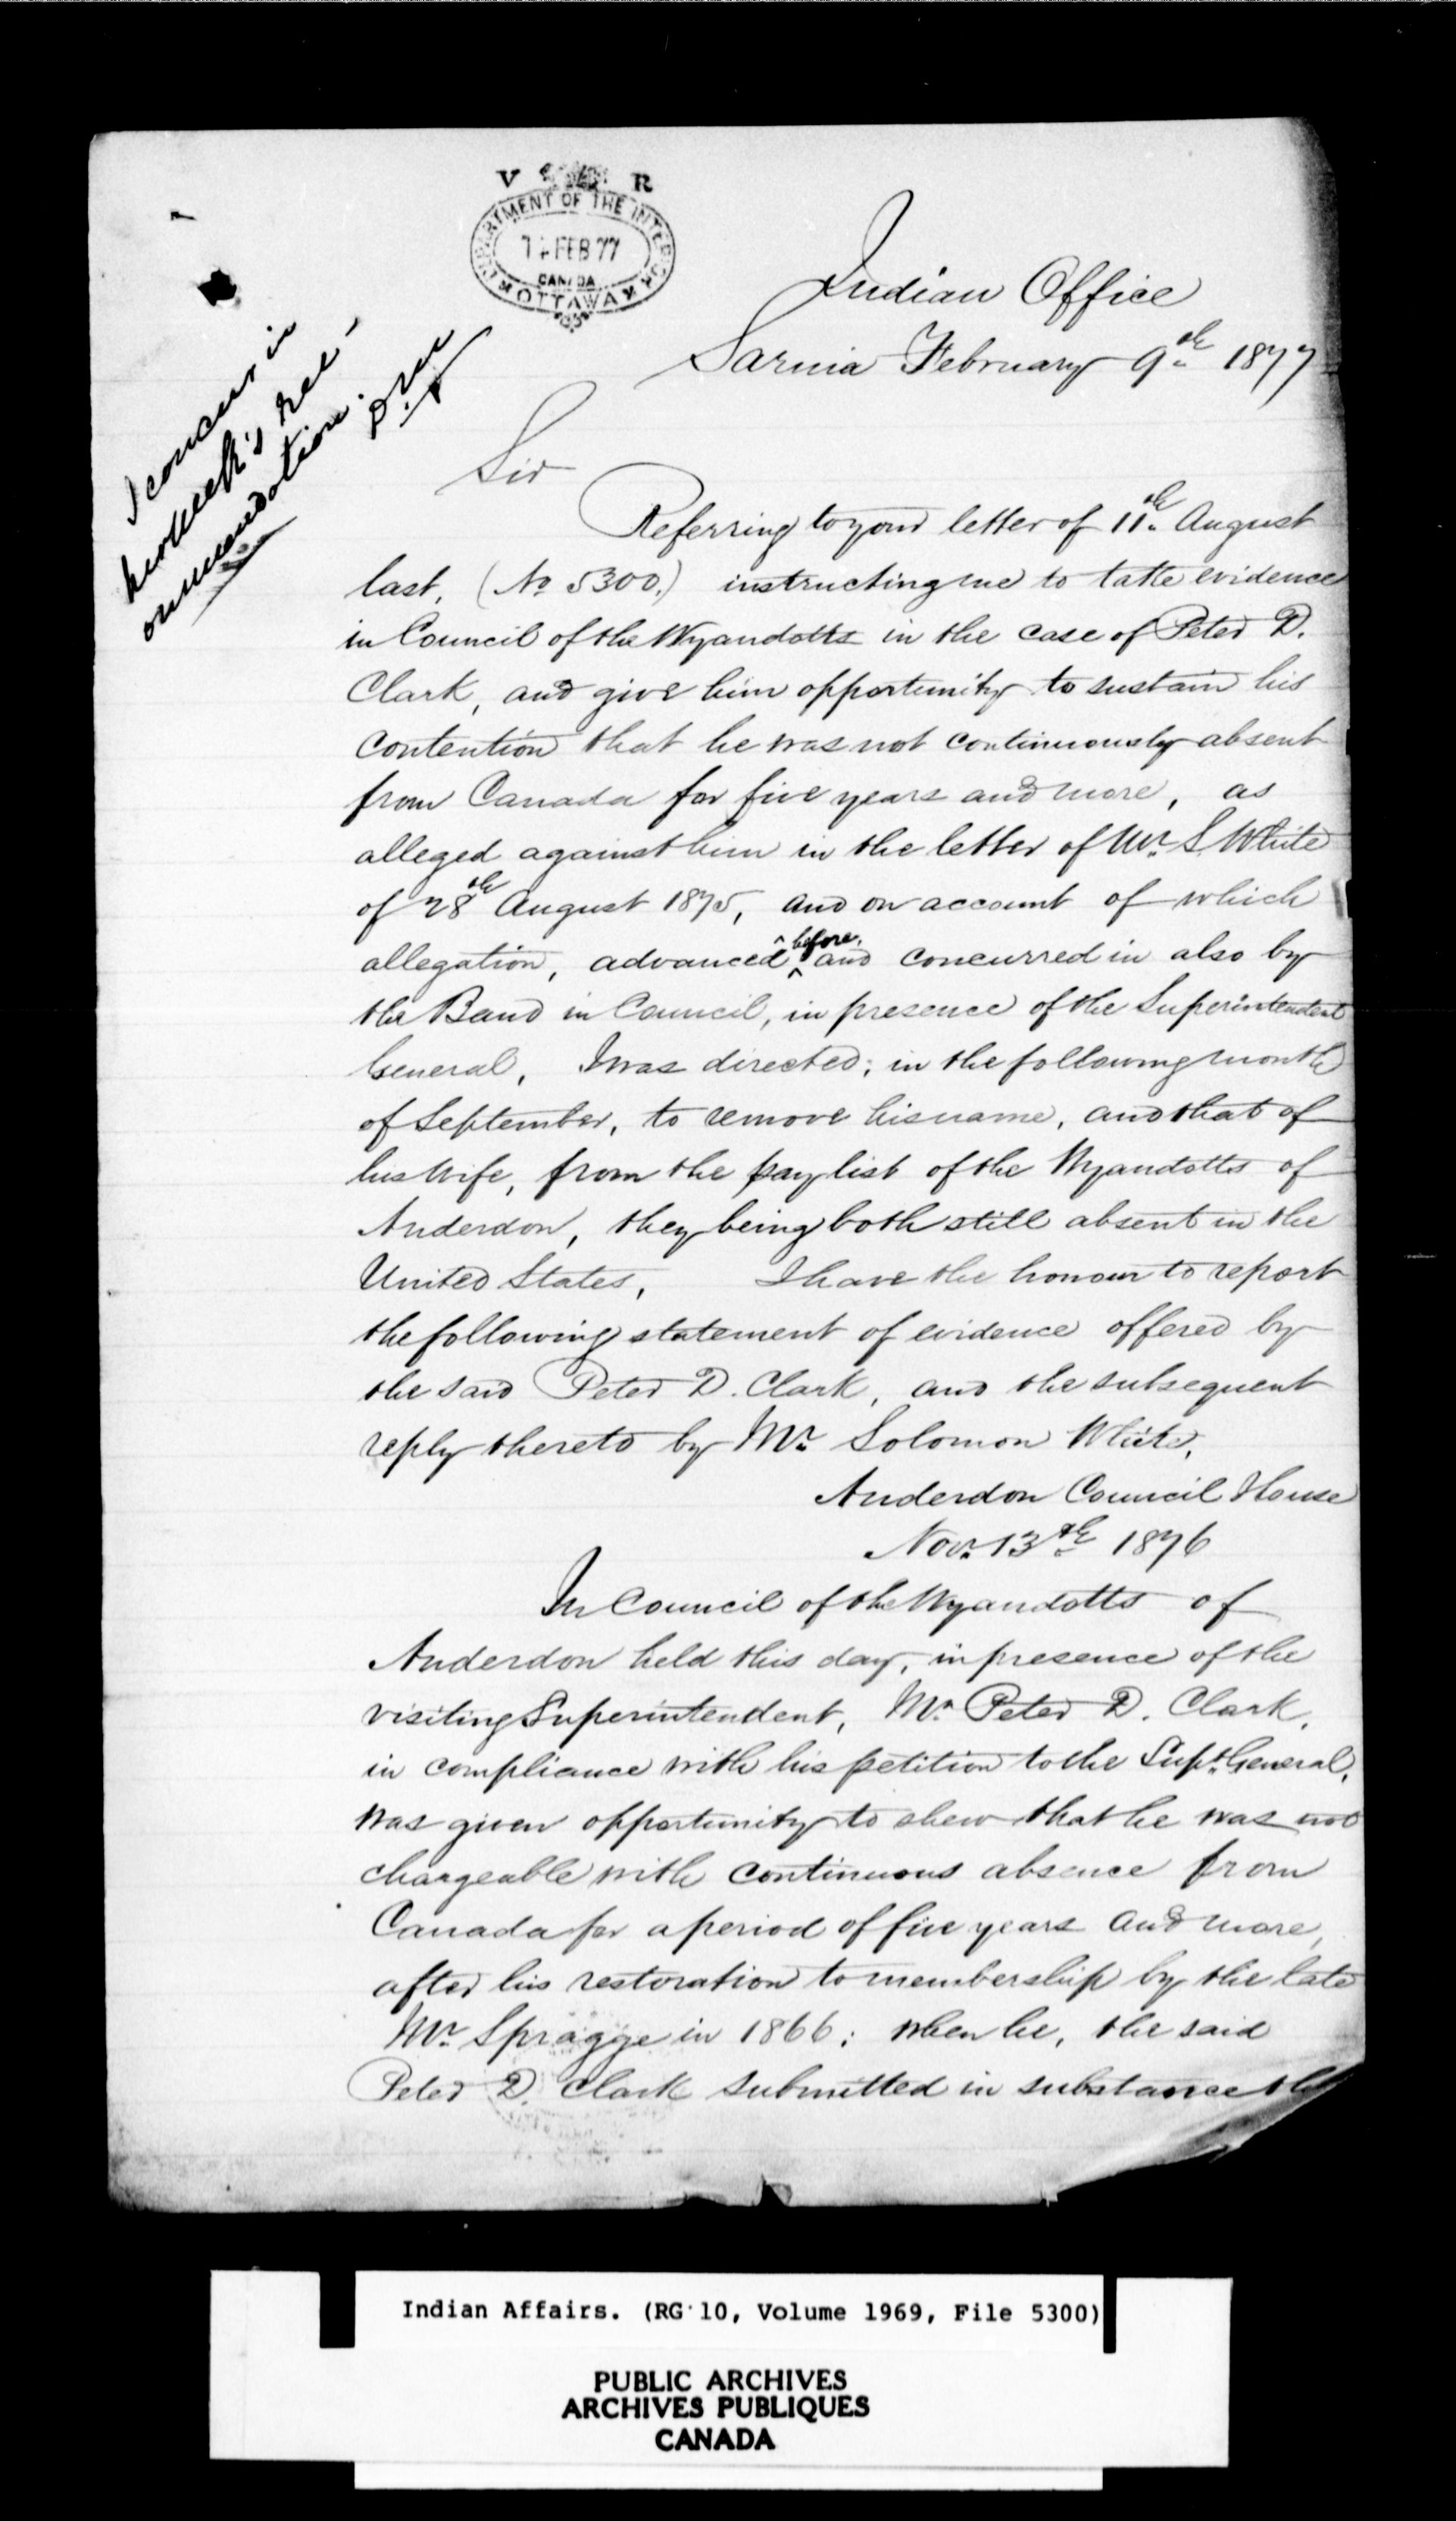 V R
DEPARTMENT OF THE INTERIOR
FEB 77
CANADA
OTTAWA
Indian Office
Sarnia February 9th 1877
I concur in
rec-
ommendation.
Sir
Referring to your letter of 11th August
last, (No 5300.) instructing me to take evidence
in Council of the Wyandotts in the case of Peter D.
Clark, and give him opportunity to sustain his
contention that he was not continuously absent
from Canada for five years and more, as
alleged against him in the letter of Mr. S. White
of 28th August 1875, and on account of which
allegation, advanced before, and concurred in also by
the Band in Council, in presence of the Superintendent
General, I was directed; in the following month
of September, to remove his name, and that of
his wife, from the pay list of the Wyandotts of
Anderdon, they being both still absent in the
United States, I have the honour to report
the following statement of evidence offered by
the said Peter D. Clark, and the subsequent
reply thereto by Mr Solomon White.
Anderdon Council House
Nov. 13th 1876
In Council of the Wyandotts of
Anderdon held this day, in presence of the
visiting Superintendent, Mr. Peter D. Clark,
in compliance with his petition to the Supt. General,
was given opportunity to shew that he was not
chargeable with continuous absence from
Canada for a period of five years and more,
after his restoration to membership by the late
Mr. Spragge in 1866; when he, the said
Peter D. Clark submitted in substance the
Indian Affairs. (RG 10, Volume 1969, File 5300)
PUBLIC ARCHIVES
ARCHIVES PUBLIQUES
CANADA